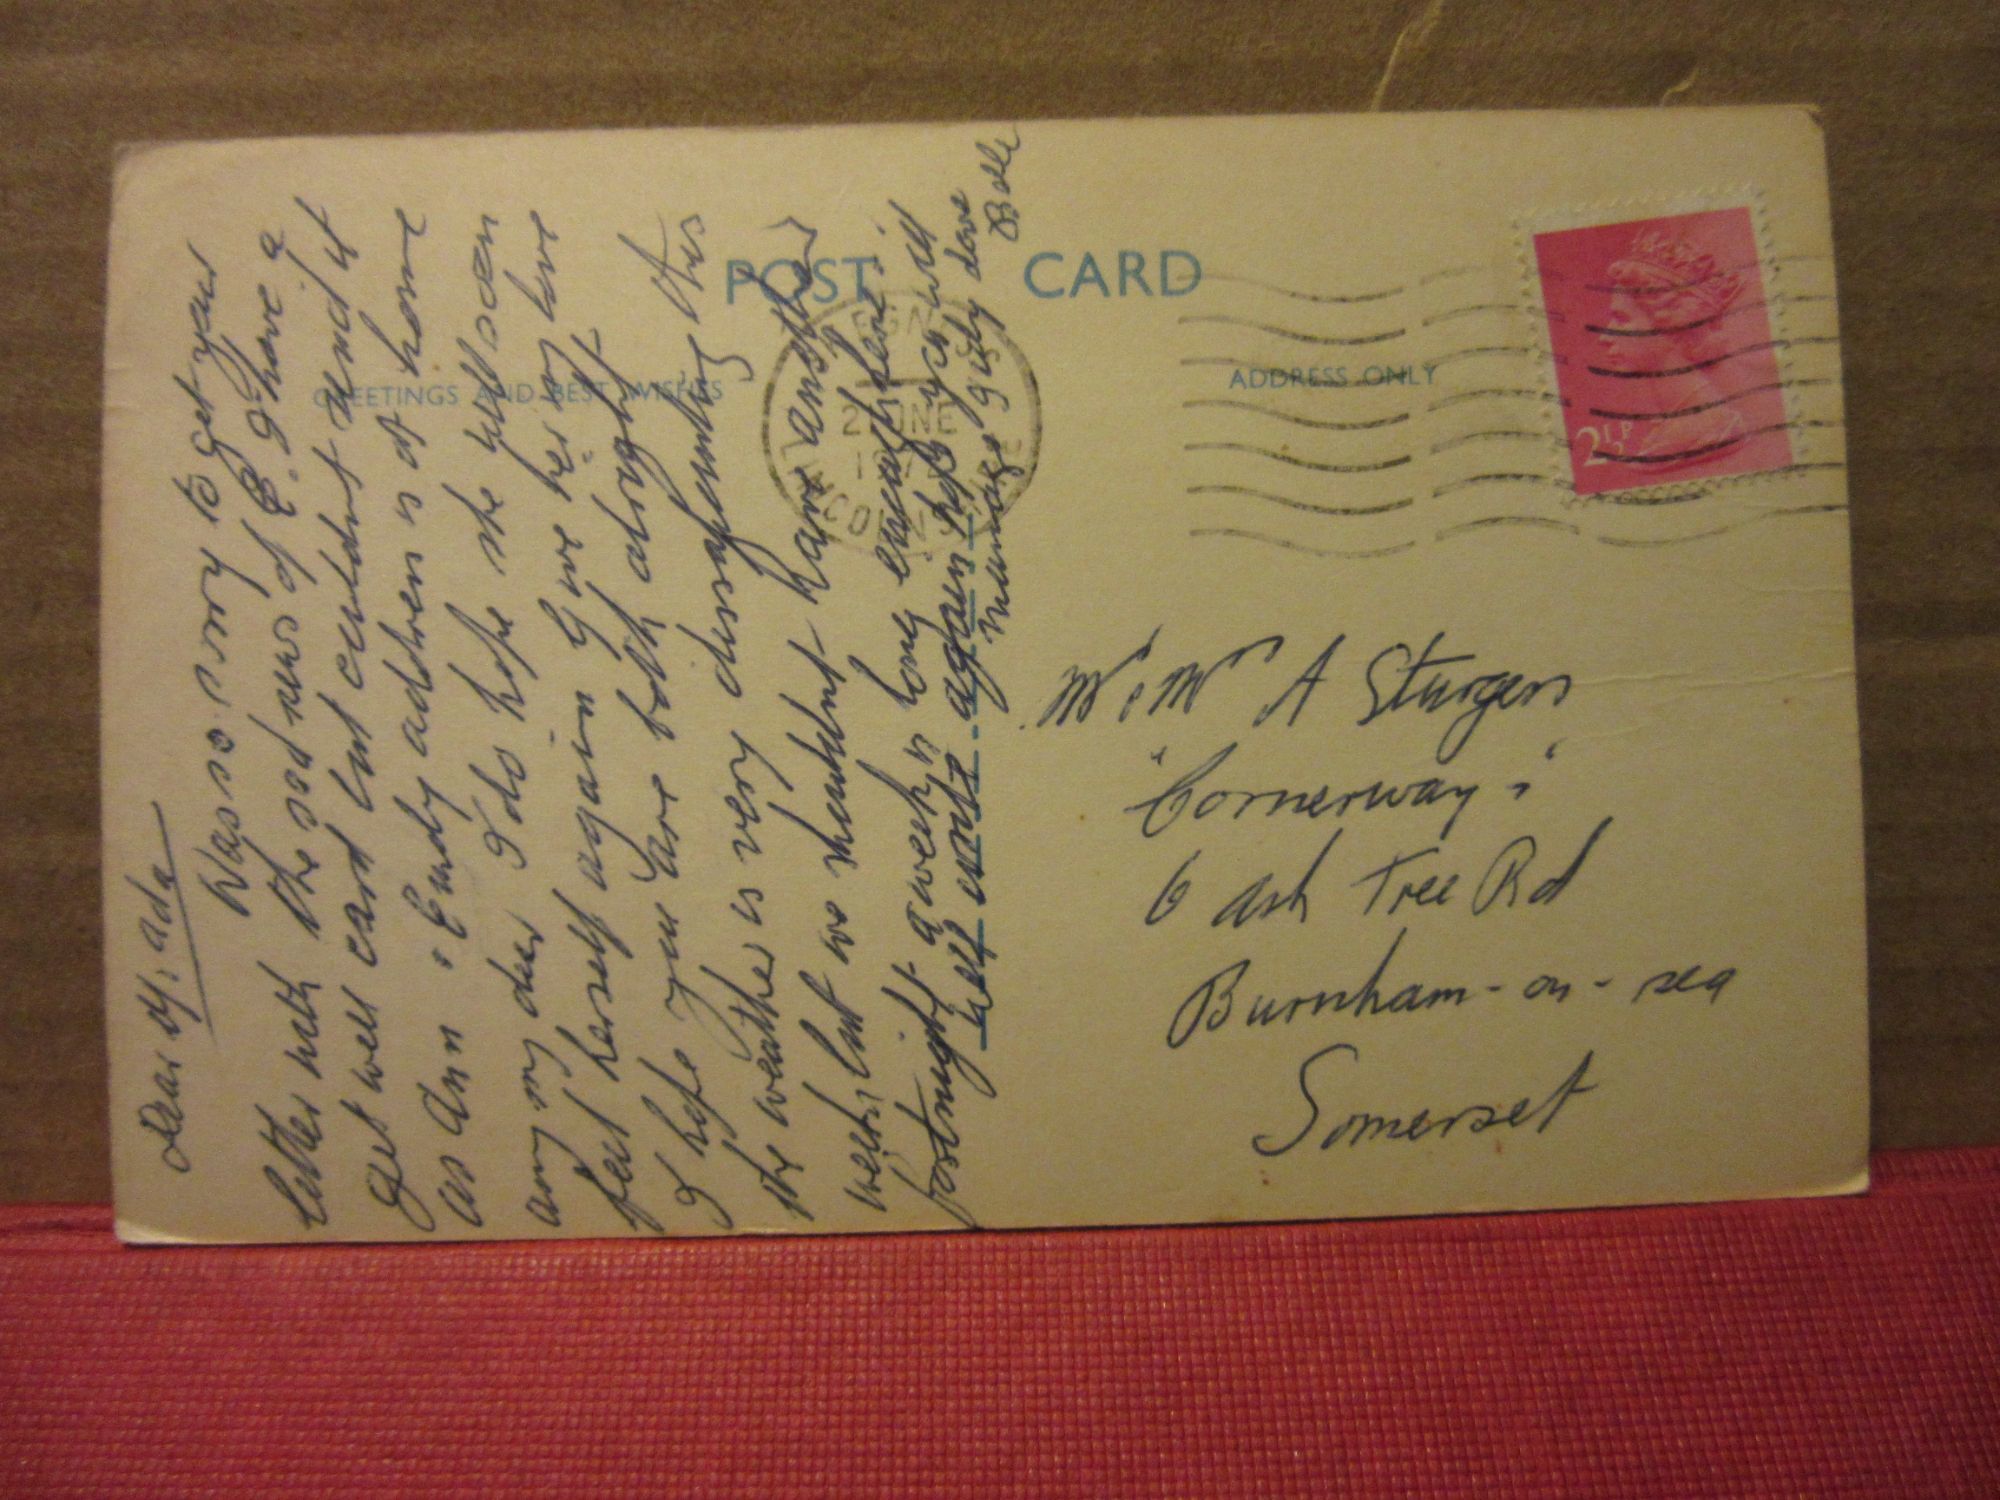 POST CARD
GREETINGS AND BEST WISHES
ADDRESS ONLY
2 JUNE
LINCOLNSHIRE
2½P
Dear Ada
Was so sorry to get your
letter with the sad news of E. I have a
get well card but can't send it
as Ann & Emily address is at home
any my dear I do hope she will soon
feel herself again give her my love
I hope you are both alright
the weather is very disappointing this
week, but we shouldn't have another
fortnight a week is long enough here.
self write again hope you will
manage guily dove
Belle
Mr & Mrs A Sturgess
"Cornerway"
6 Ash Tree Rd
Burnham-on-sea
Somerset